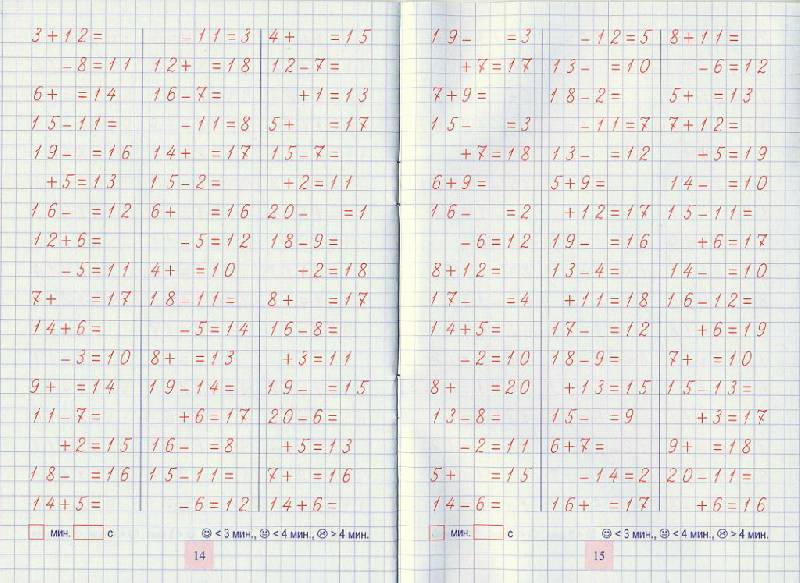 3+12=
-8=11
6+ =14
15-11=
19- =16
+5=13
16- =12
12+6=
-5=11
7+ =17
14+6=
-3=10
9+ =14
11-7=
+2=15
18- =16
14+5=
-11=3
12+ =18
16-7=
-11=8
14+ =17
15-2=
6+ =16
-5=12
4+ =10
18-11=
-5=14
8+ =13
19-14=
+6=17
16- =8
15-11=
-6=12
4+ =15
12-7=
+1=13
5+ =17
15-7=
+2=11
20- =1
18-9=
-2=18
8+ =17
16-8=
+3=11
19- =15
20-6=
+5=13
7+ =16
14+6=
мин. с
☺ < 3 мин., 😐 < 4 мин., ☹ > 4 мин.
14
19- =3
+7=17
7+9=
15- =3
+7=18
6+9=
16- =2
-6=12
8+12=
17- =4
14+5=
-2=10
8+ =20
13-8=
-2=11
5+ =15
14-6=
-12=5
13- =10
18-2=
-11=7
13- =12
5+9=
+12=17
19- =16
13-4=
+11=18
17- =12
18-9=
+13=15
15- =9
6+7=
-14=2
16+ =17
8+11=
-6=12
5+ =13
7+12=
-5=19
14- =10
15-11=
+6=17
14- =10
16-12=
+6=19
7+ =10
15-13=
+3=17
9+ =18
20-11=
+6=16
мин. с
☺ < 3 мин., 😐 < 4 мин., ☹ > 4 мин.
15